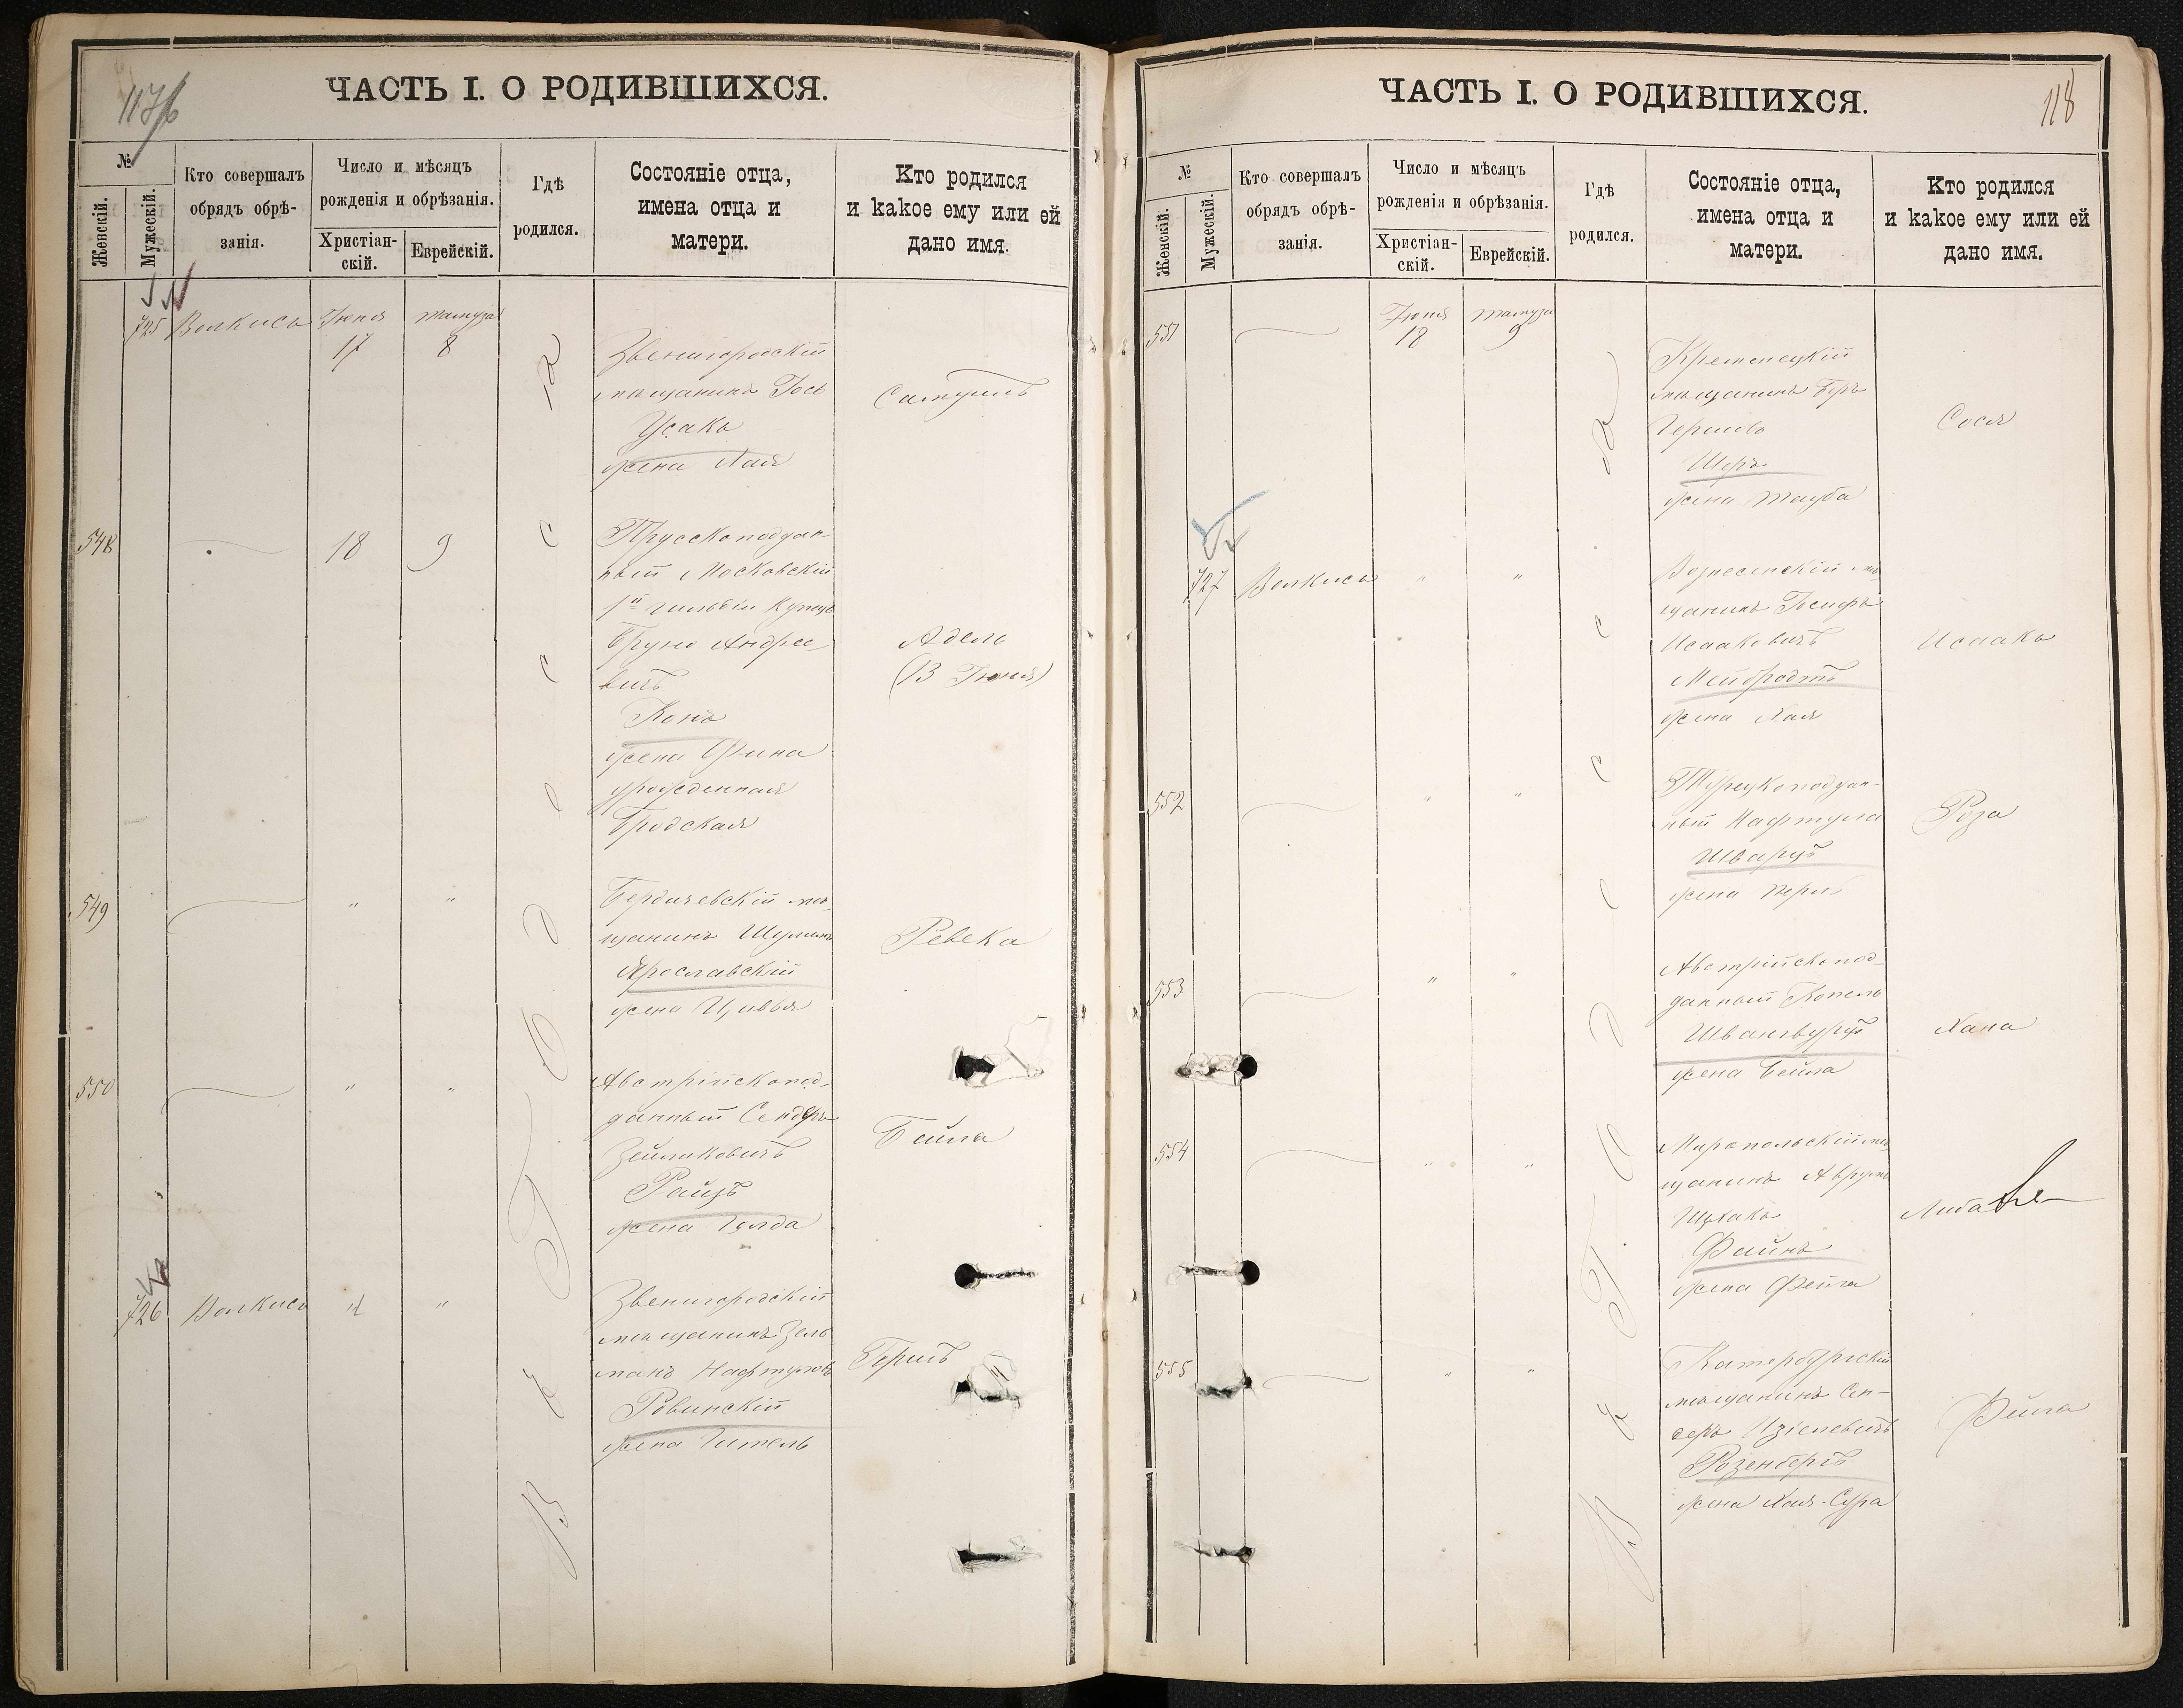 117/б
ЧАСТЬ I. О РОДИВШИХСЯ.
№
Женскій.
Мужескій.
Кто совершалъ
обрядъ обрѣ-
занія.
Число и мѣсяцъ
рожденія и обрѣзанія.
Христіан-
скій.
Еврейскій.
Гдѣ
родился.
Состояніе отца,
имена отца и
матери.
Кто родился
и какое ему или ей
дано имя.
725 Волкисъ Іюня 17 тамуза 8
Звенигородскій
мѣщанинъ Іось
Усакъ
жена Хая
Самуилъ
548 18 9
Прусскоподдан-
ный Московскій
1й гильдіи купецъ
Бруно Андрее-
вичъ
Конъ
жена Фина
урожденная
Бродская
Адель
(13 Іюня)
549 " "
Бердичевскій мѣ-
щанинъ Шулимъ
Ярославскій
жена Цивья
Ревека
550 " "
Австрійскопод-
данный Сендеръ
Зейликовичъ
Райзъ
жена Голда
Бейла
726 Волкисъ " "
Звенигородскій
мѣщанинъ Зель
манъ Нафтуловъ
Ровинскій
жена Гитель
Гершъ
В ъ Г. О д е с с а
118
ЧАСТЬ I. О РОДИВШИХСЯ.
№
Женскій.
Мужескій.
Кто совершалъ
обрядъ обрѣ-
занія.
Число и мѣсяцъ
рожденія и обрѣзанія.
Христіан-
скій.
Еврейскій.
Гдѣ
родился.
Состояніе отца,
имена отца и
матери.
Кто родился
и какое ему или ей
дано имя.
551 Іюня 18 тамуза 9
Кременецкій
мѣщанинъ Беръ
Гершовъ
Шеръ
жена Тауба
Сося
727 Волкисъ " "
Вознесенскій мѣ-
щанинъ Іосифъ
Исааковичъ
Мейбродтъ
жена Хая
Исаакъ
552 " "
Турецкоподдан-
ный Нафтула
Шварцъ
жена Перль
Роза
553 " "
Австрійскопод-
данный Копель
Швангвурцъ
жена Бейла
Хана
554 " "
Миропольскій мѣ-
щанинъ Аврумъ
Ицхакъ
Файнъ
жена Фейга
Либа
555 " "
Катербургскій
мѣщанинъ Сен-
деръ Изіелевичъ
Розенбергъ
жена Хая-Сура
Фейга
В ъ Г. О д е с с а